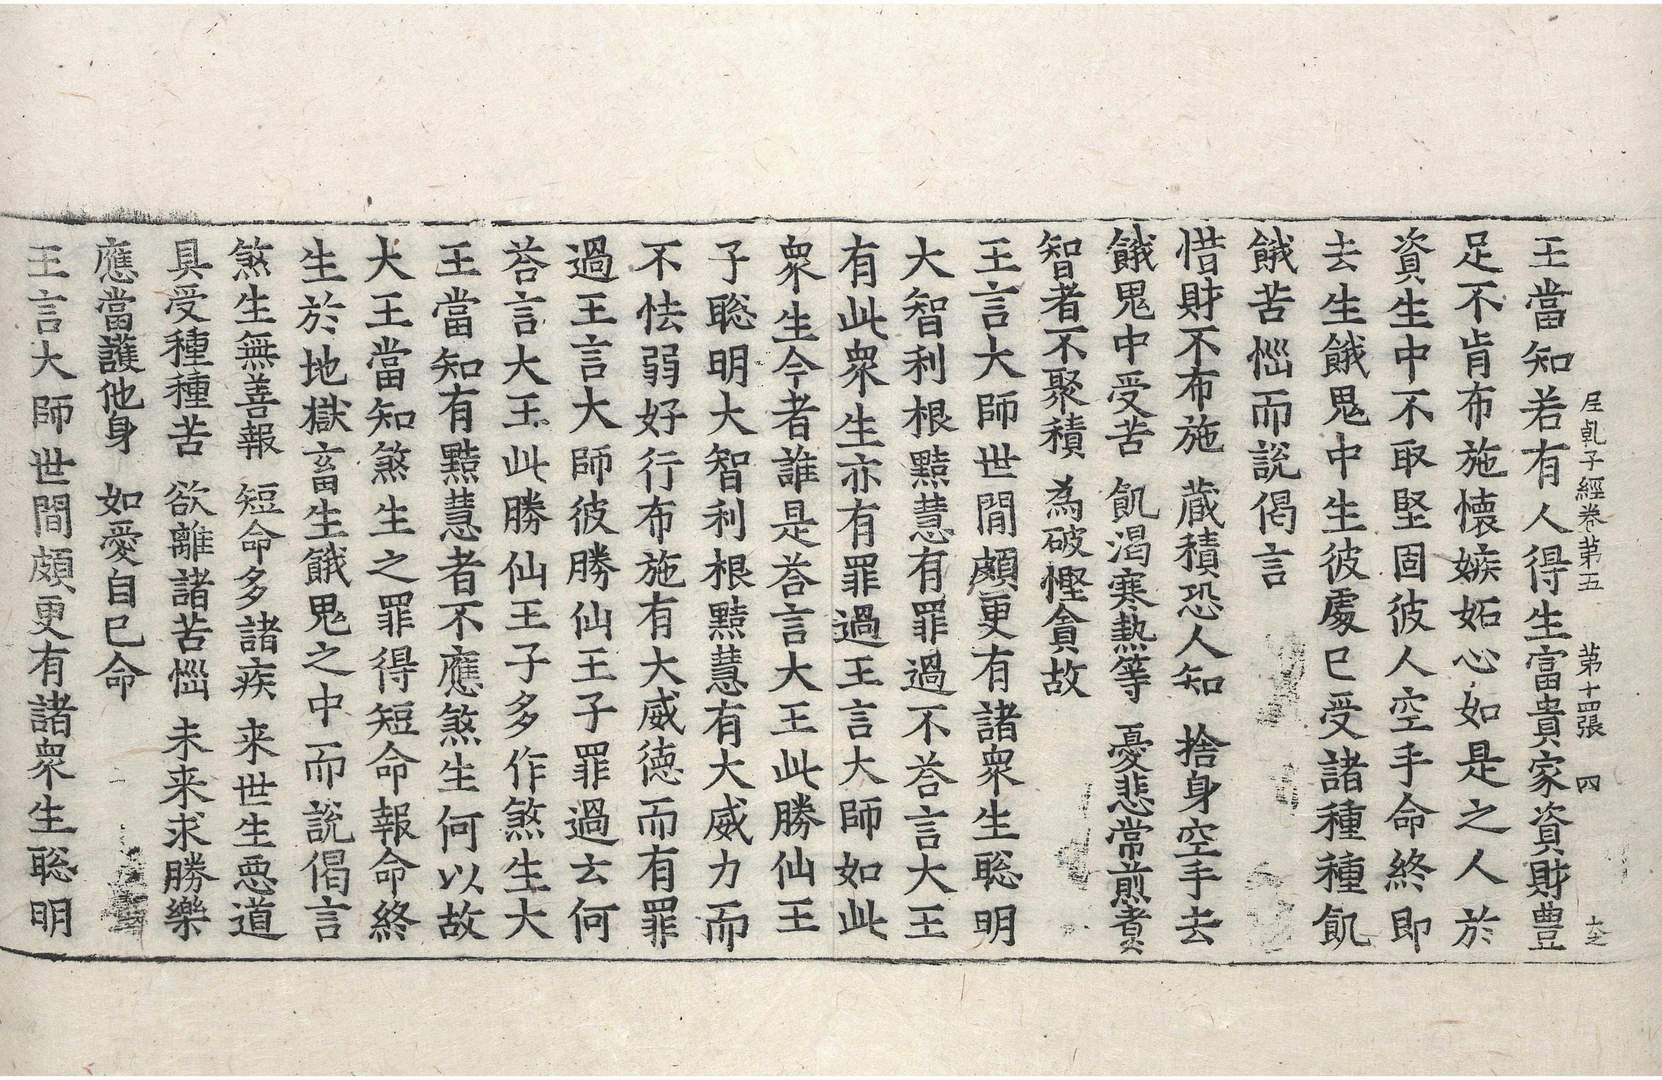 尼乹子經卷第五　第十四張　四
王當知若有人得生富貴家資財豊
足不肯布施懷嫉妬心如是之人於
資生中不取堅固彼人空手命終即
去生餓鬼中生彼處已受諸種種飢
餓苦惱而説偈言
惜財不布施　藏積恐人知　捨身空手去
餓鬼中受苦　飢渴寒熱等　憂悲常煎煑
智者不聚積　為破慳貪故
王言大師世間頗更有諸衆生聡明
大智利根黠慧有罪過不荅言大王
有此衆生亦有罪過王言大師如此
衆生今者誰是荅言大王此勝仙王
子聡明大智利根黠慧有大威力而
不怯弱好行布施有大威德而有罪
過王言大師彼勝仙王子罪過云何
荅言大王此勝仙王子多作煞生大
王當知有黠慧者不應煞生何以故
大王當知煞生之罪得短命報命終
生於地獄畜生餓鬼之中而説偈言
煞生無善報　短命多諸疾　来世生惡道
具受種種苦　欲離諸苦惱　未来求勝樂
應當護他身　如愛自已命
王言大師世間頗更有諸衆生聡明